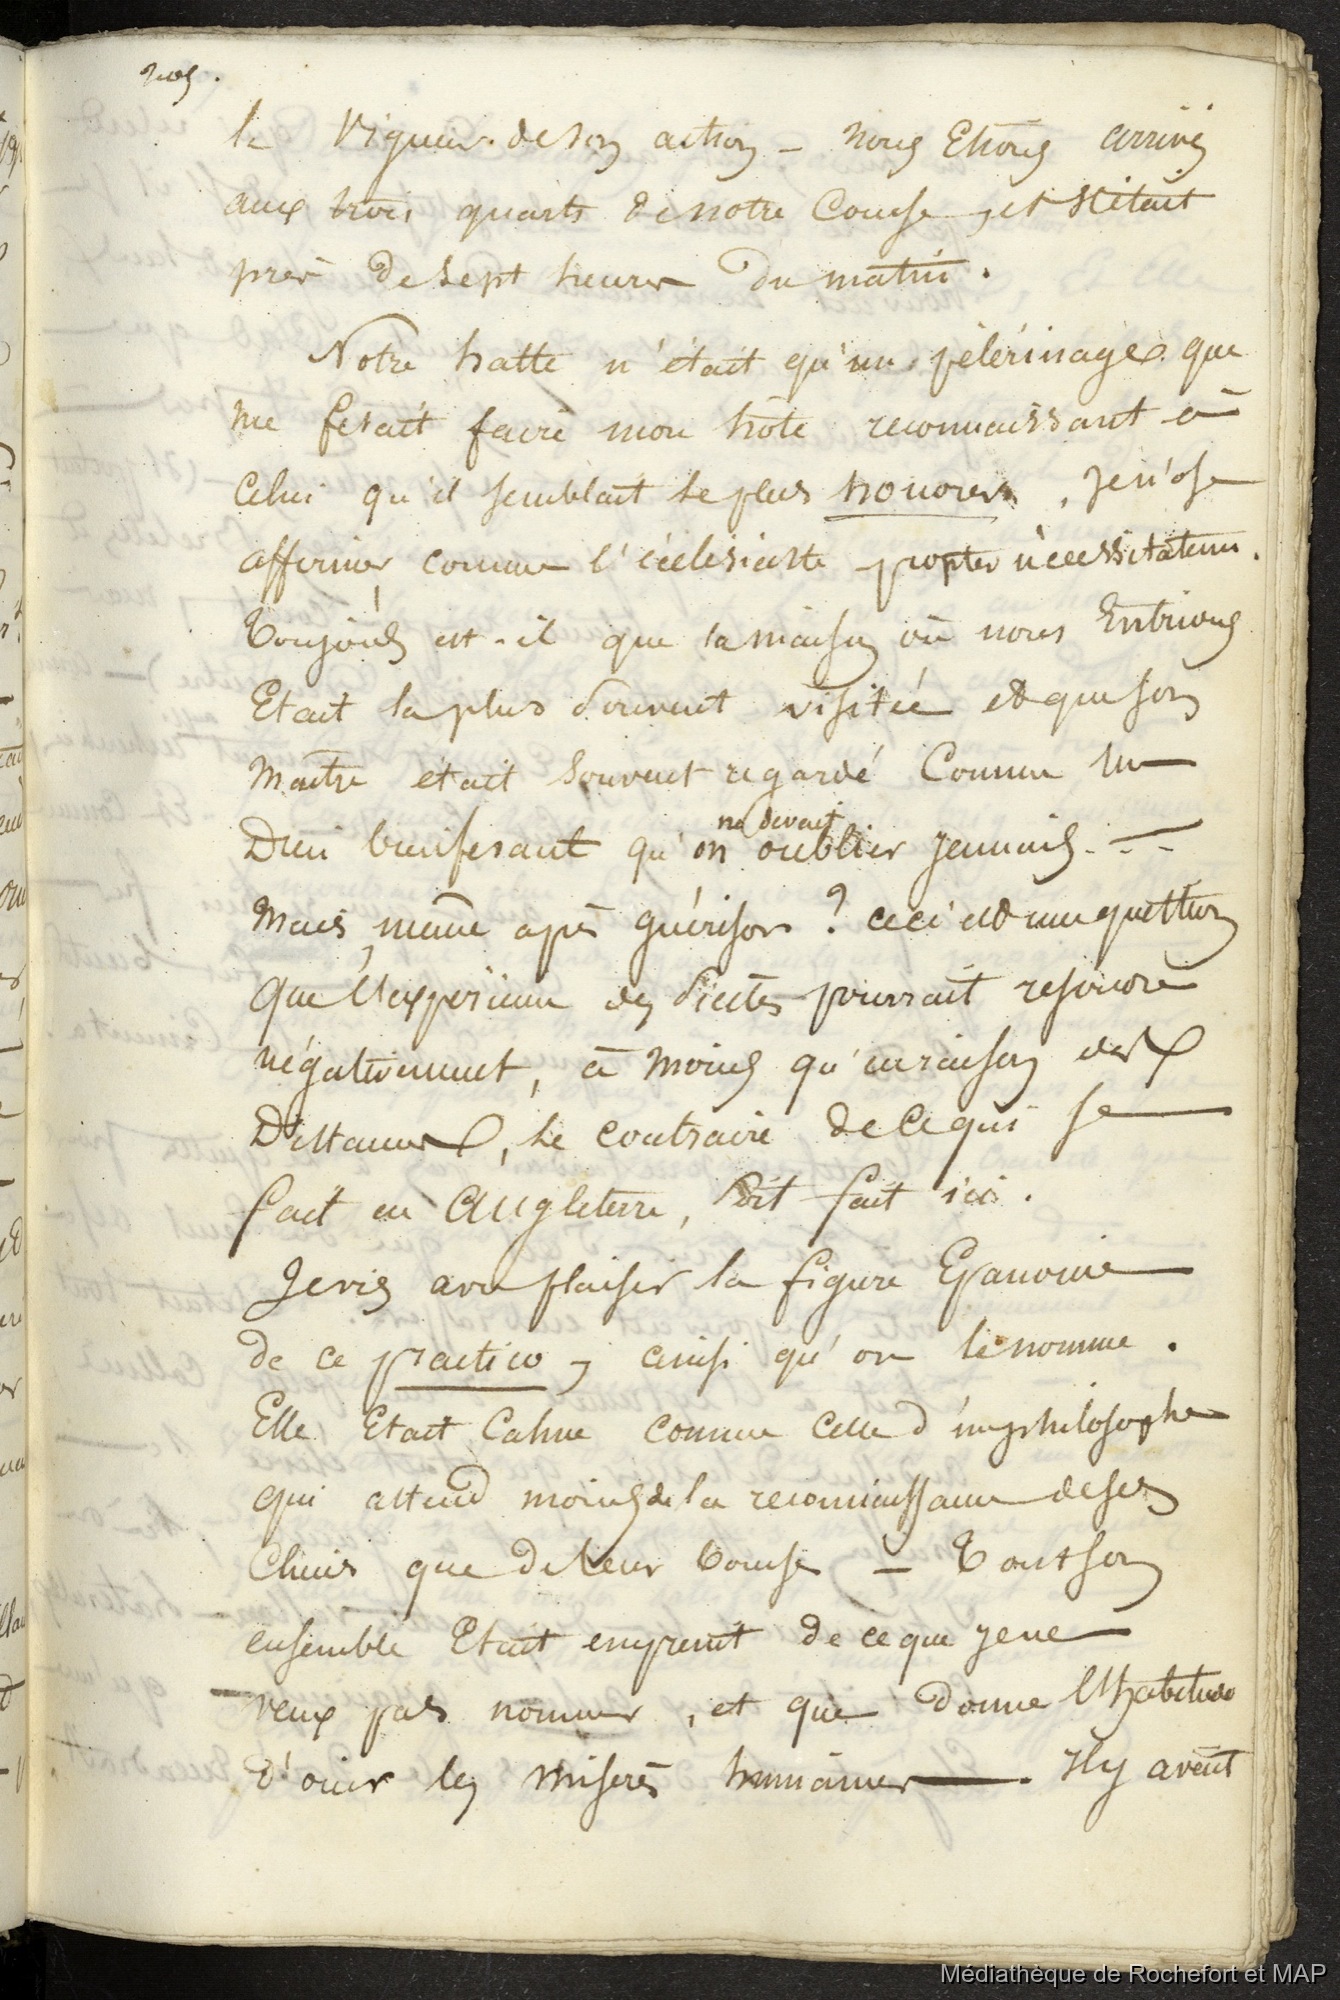 la vigueur de son action – nous Etions arrivés
aux trois quarts de notre Course, et s'était
près de sept heures du matin.
Notre halte n'était qu'un pélérinage que
me fesait faire mon hôte reconnaissant à
Celui qu'il semblait le plus honorer, je n'ose
affirmer, comme l'écclésiaste propter necessitatem.
Toujours est-il que la maison où nous Entrions
Etait la plus souvent visitée et que son
Maitre était souvent regardé Comme un
Dieu bienfesant qu'on ne devait oublier jamais. –
Mais, même après guérison ? ceci est une question
que l'expérience des siècles pourrait résoudre
négativement, à moins qu'en raison des
Distances, le contraire de ce qui se
fait en Angleterre, soit fait ici.
Je vis avec plaisir la figure Epanouie
de ce practico, ainsi qu'on le nomme.
Elle Etait Calme comme celle d'un philosophe
qui attend moins de la reconnaissance de ses
Cliens que de leur bourse – Tout son
ensemble Etait empreint de ce que je ne
veux pas nommer, et que donne l'habitude
d'ouir les misères humaines. Il y avait
Médiathèque de Rochefort et MAP